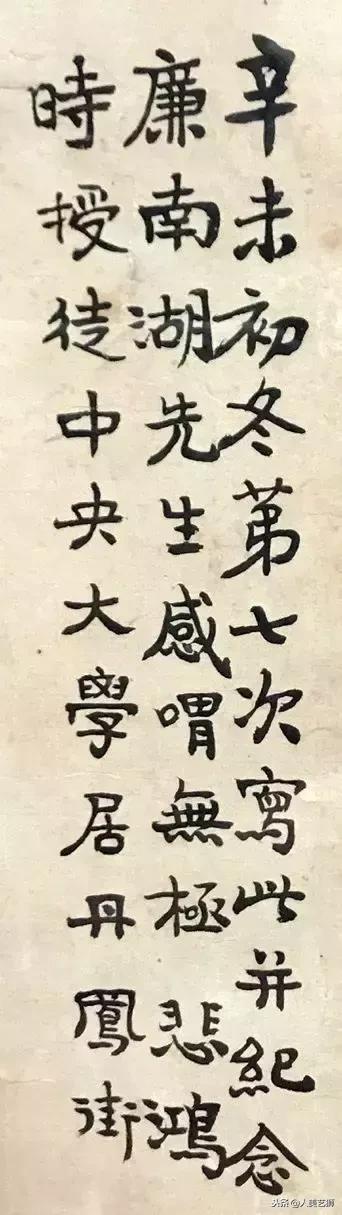 辛未初冬第七次寫此并紀念
廉南湖先生感喟無極 悲鴻
時授徒中央大學居丹鳳街
头条@人美艺狮